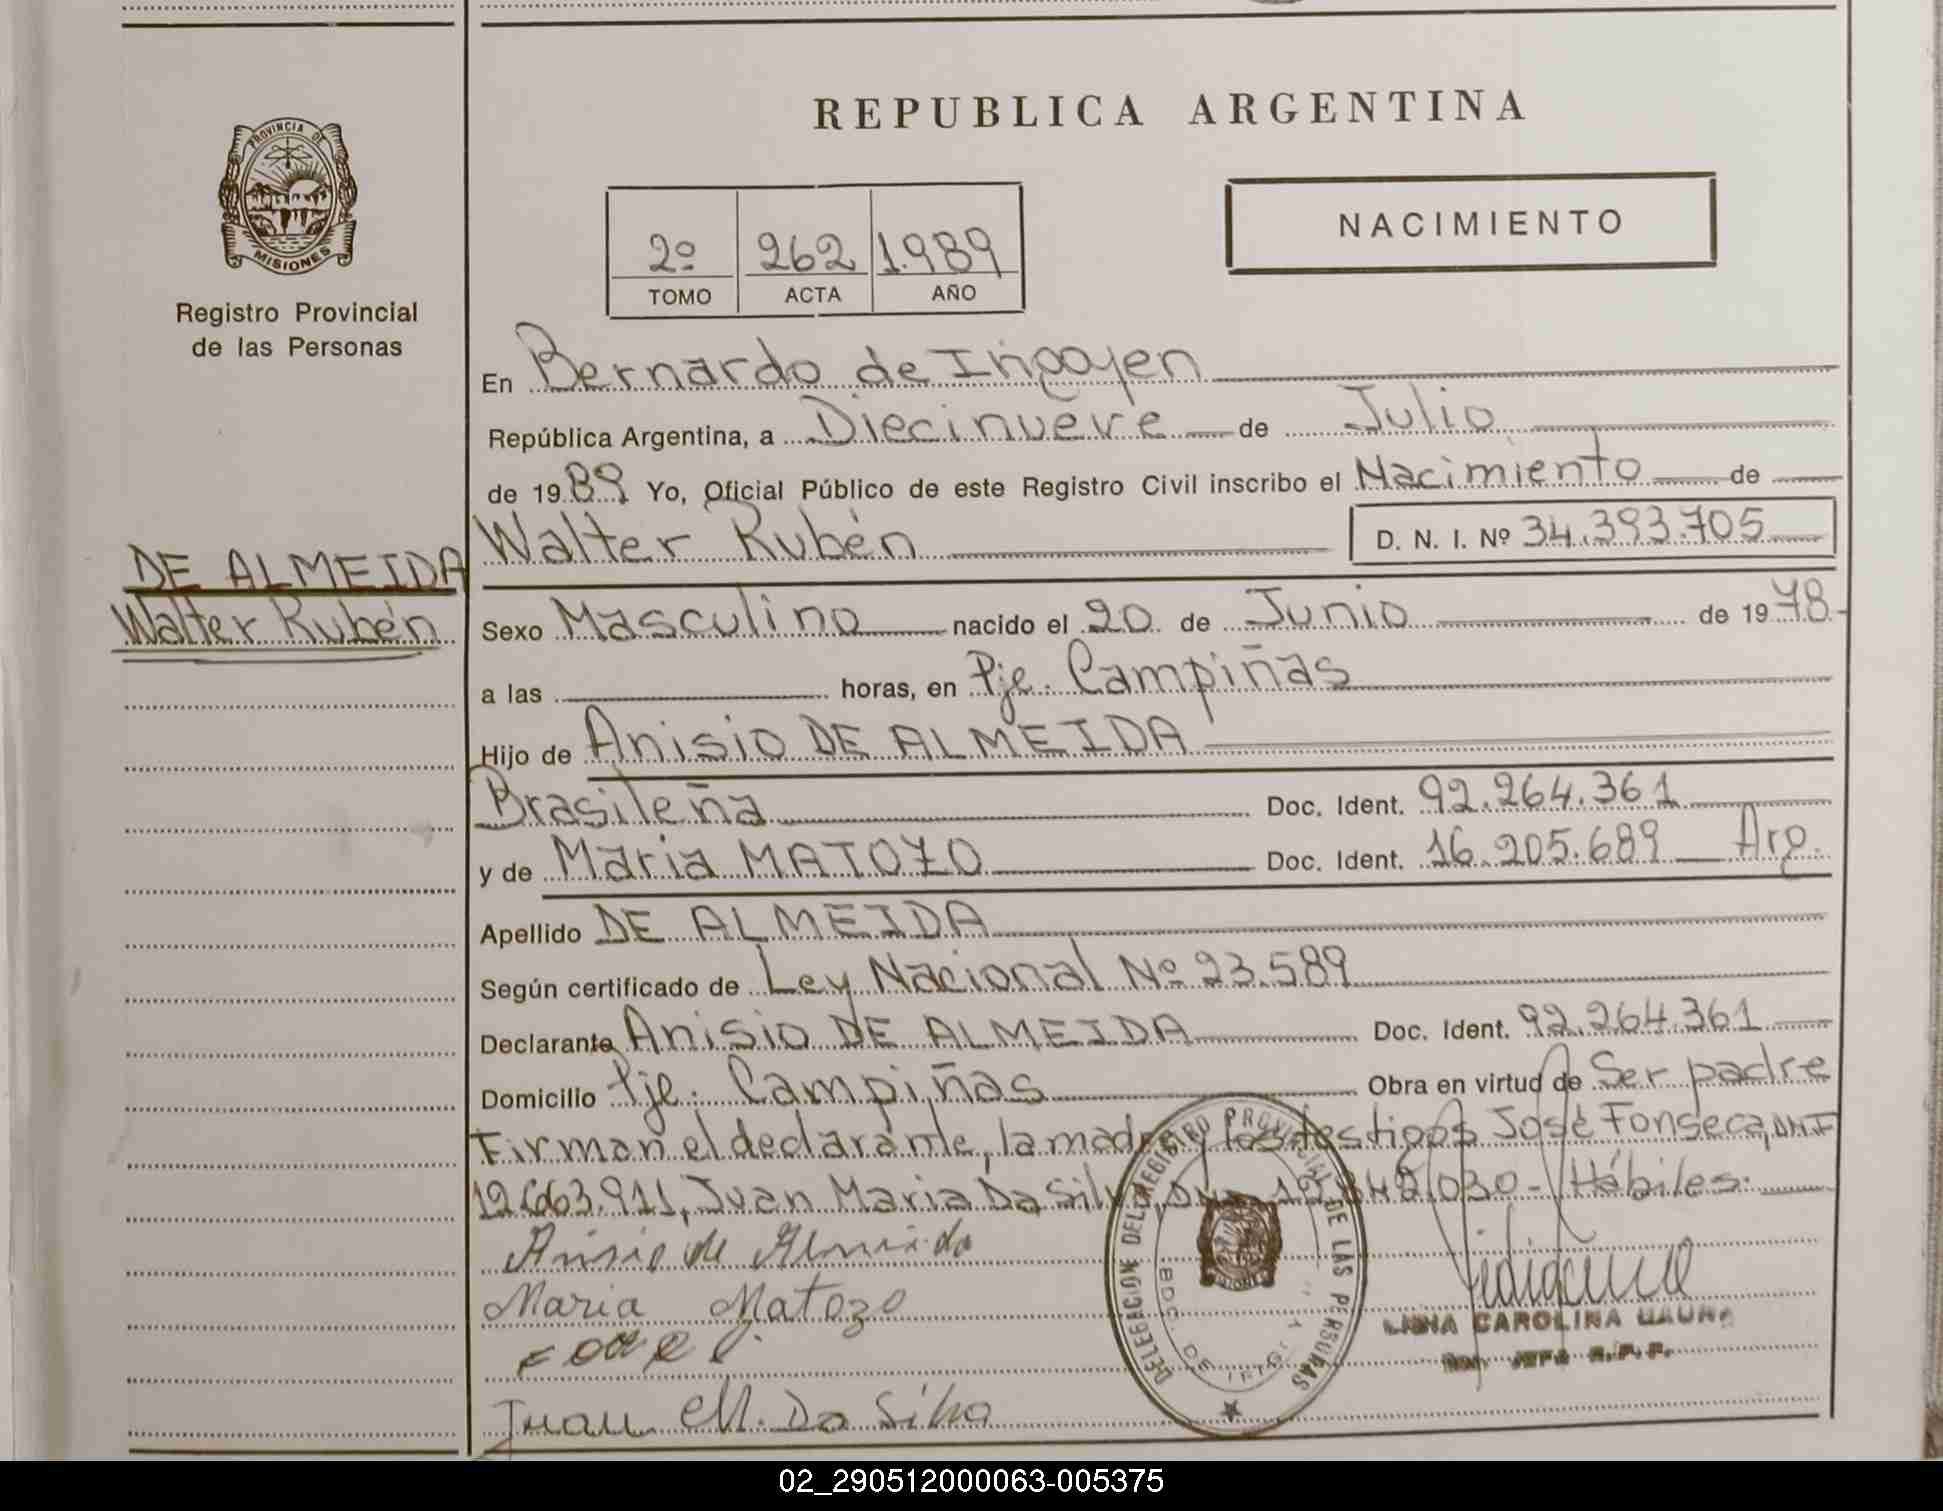 REPUBLICA ARGENTINA
PROVINCIA DE
MISIONES
Registro Provincial
de las Personas
2º 262 1.989
TOMO ACTA AÑO
NACIMIENTO
En Bernardo de Irigoyen
República Argentina, a Diecinueve de Julio
de 1989 Yo, Oficial Público de este Registro Civil inscribo el Nacimiento de
Walter Rubén D. N. I. Nº 34.393.705
DE ALMEIDA
Walter Rubén
Sexo Masculino nacido el 20 de Junio de 1978
a las horas, en Pje. Campiñas
Hijo de Anisio DE ALMEIDA
Brasileña Doc. Ident. 92.264.361
y de Maria MATOZO Doc. Ident. 16.205.689 Arg.
Apellido DE ALMEIDA
Según certificado de Ley Nacional Nº 23.589
Declarante Anisio DE ALMEIDA Doc. Ident. 92.264.361
Domicilio Pje. Campiñas Obra en virtud de Ser padre
Firman el declarante, la madre y los testigos José Fonseca, DNI
12.663.911, Juan Maria Da Silva, Hábiles.
Anisio de Almeida
Maria Matozo
Juan M. Da Silva
DELEGACION DEL REGISTRO PROVINCIAL DE LAS PERSONAS
BDO. DE IRIGOYEN
MISIONES
CAROLINA
JEFA R.P.P.
02_290512000063-005375